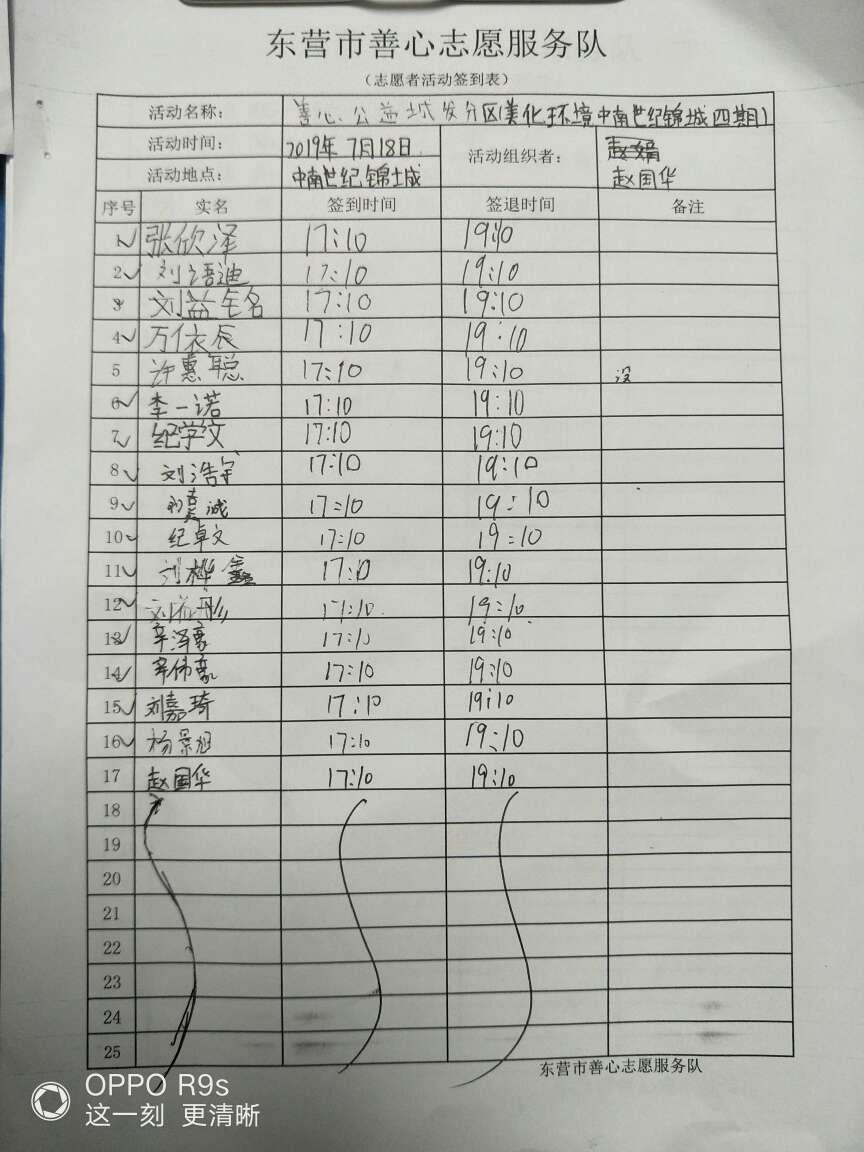 东营市善心志愿服务队
（志愿者活动签到表）
活动名称： 善心公益城发分区(美化环境中南世纪锦城四期)
活动时间： 2019年7月18日 活动组织者： 赵国华
活动地点： 中南世纪锦城
序号 实名 签到时间 签退时间 备注
1 张欣泽 17:10 19:10
2 刘语迪 17:10 19:10
3 刘益铭 17:10 19:10
4 万依辰 17:10 19:10
5 许惠聪 17:10 19:10 没
6 李一诺 17:10 19:10
7 纪学文 17:10 19:10
8 刘浩宇 17:10 19:10
9 诚 17:10 19:10
10 纪卓文 17:10 19:10
11 刘桦鑫 17:10 19:10
12 刘 彤 17:10 19:10
13 辛泽豪 17:10 19:10
14 辛伟豪 17:10 19:10
15 刘嘉琦 17:10 19:10
16 杨景旭 17:10 19:10
17 赵国华 17:10 19:10
18
19
20
21
22
23
24
25
东营市善心志愿服务队
OPPO R9s
这一刻 更清晰